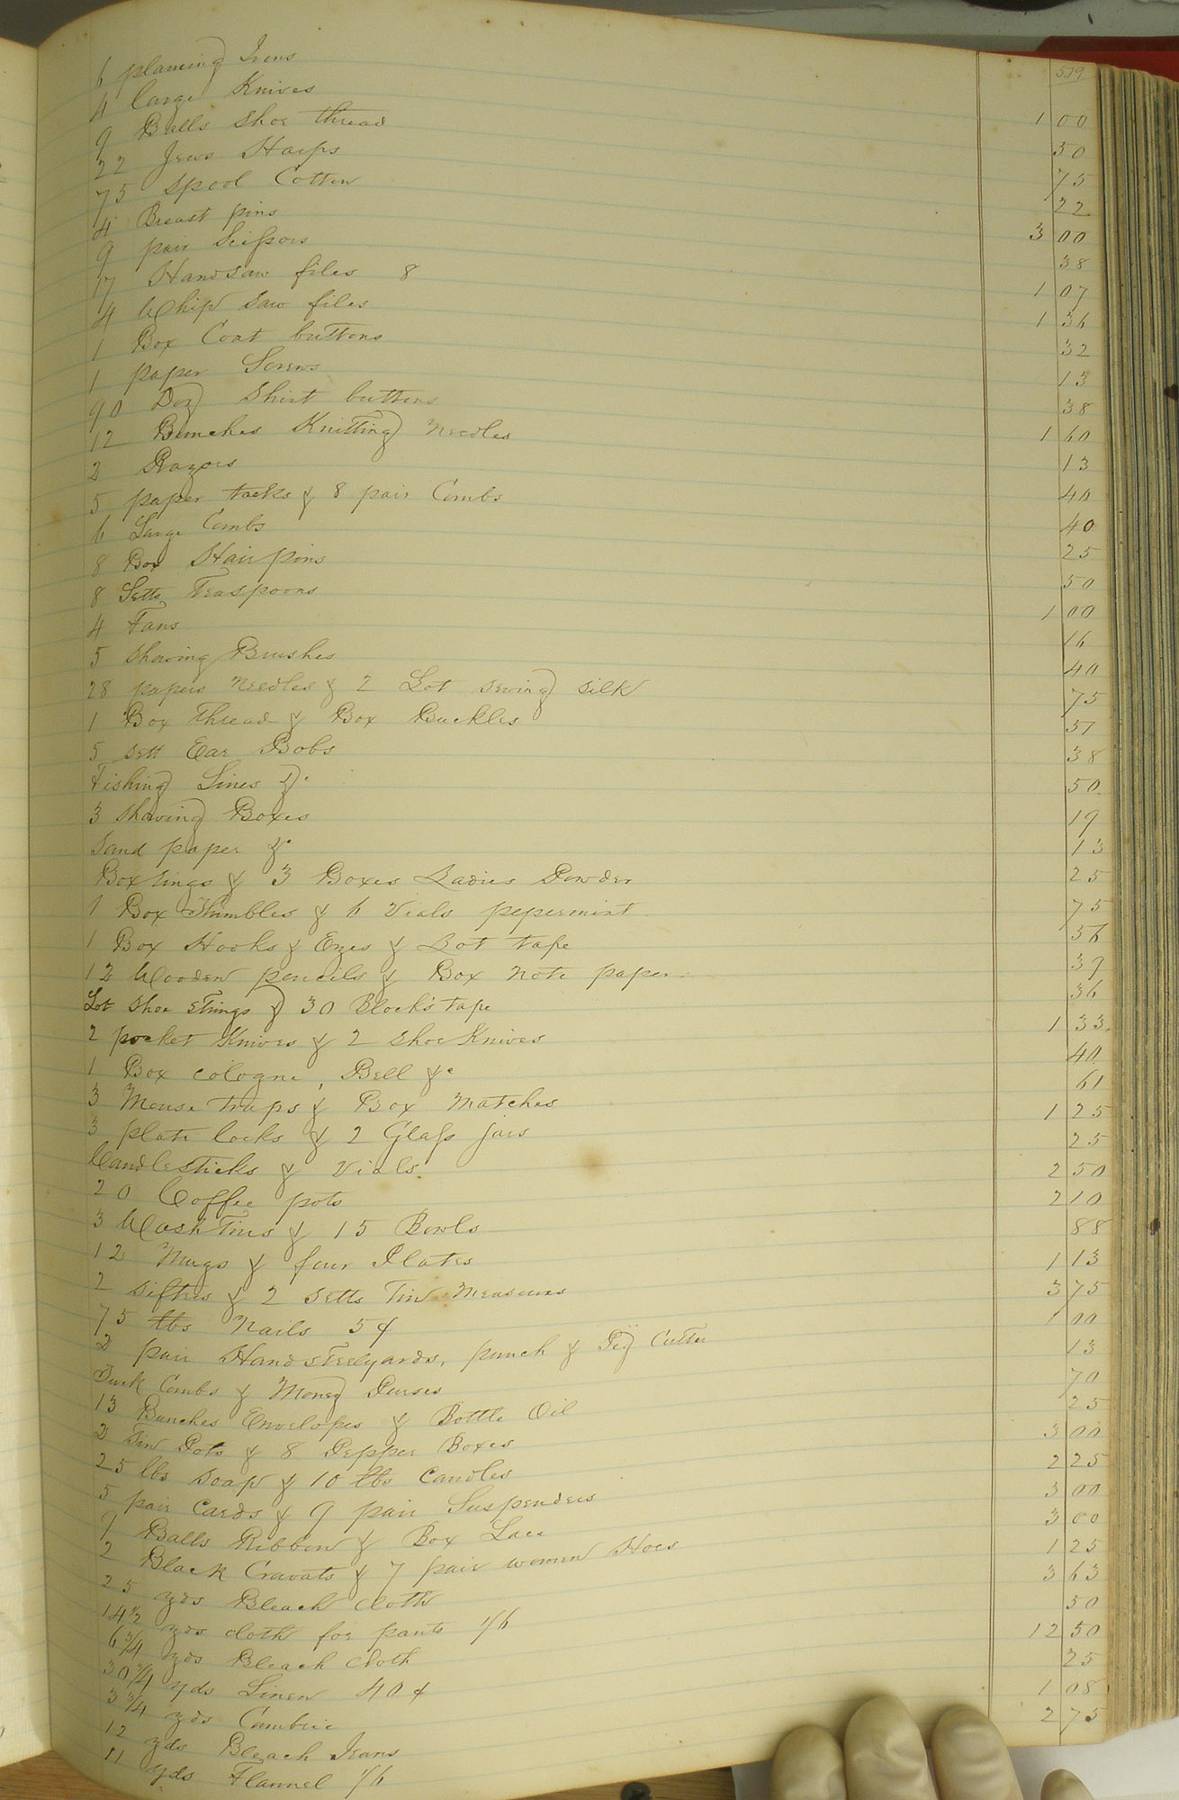 539
6 planeing Irons 1 00
4 large Knives 50
9 Balls Shoe thread 75
22 Jews Harps 22
75 Spool Cotten 3 00
4 Breast pins 38
9 pair Scissors 1 07
17 Handsaw files 8 1 36
4 Whip saw files 32
1 Box Coat buttons 13
1 paper Screws 38
90 Doz Shirt buttons 1 60
12 Bunches Knitting Needles 13
2 Razors 40
5 paper tacks & 8 pair Combs 40
6 Large Combs 25
8 Box Hair pins 50
8 Setts Teaspoons 1 00
4 Fans 16
5 Shaving Brushes 40
28 papers Needles & 2 Lot sewing silk 75
1 Box thread & Box Buckles 57
5 sett Ear Bobs 38
Fishing Lines &c 50
3 Shaving Boxes 19
Sand paper &c 13
Box rings & 3 Boxes Ladies Powder 25
1 Box Thimbles & 6 Vials pepermint 75
1 Box Hooks & Ezes & Lot tape 56
12 Wooden pencils & Box Note paper 39
Lot Shoe Strings & 30 Block's tape 36
2 pocket Knives & 2 Shoe Knives 1 33
1 Box cologne, Bell &c 40
3 Mouse traps & Box Matches 61
3 plate locks & 2 Glass jars 1 25
Candlesticks & Vials 25
20 Coffee pots 2 50
3 Wash Tins & 15 Bowls 2 10
12 Mugs & four Plates 88
2 Sifters & 2 setts Tin Measures 1 13
75 lbs Nails 5¢ 3 75
2 pair Hand steelyards, punch & Peg Cutter 1 00
Tuck Combs & Money Purses 13
13 Bunches Envelopes & Bottle Oil 70
2 Tin Pots & 8 Pepper Boxes 25
25 lbs Soap & 10 lbs Candles 3 00
5 pair Cards & 9 pair Suspenders 2 25
9 Balls Ribbon & Box Lace 3 00
2 Black Cravats & 7 pair women Shoes 3 00
25 yds Bleach Cloth 1 25
14 1/2 yds cloth for pants 1/6 3 63
6 3/4 yds Bleach Cloth 50
30 3/4 yds Linen 40¢ 12 50
3 3/4 yds Cambric 25
12 yds Bleach Jeans 1 08
11 yds Flannel 1/6 2 75